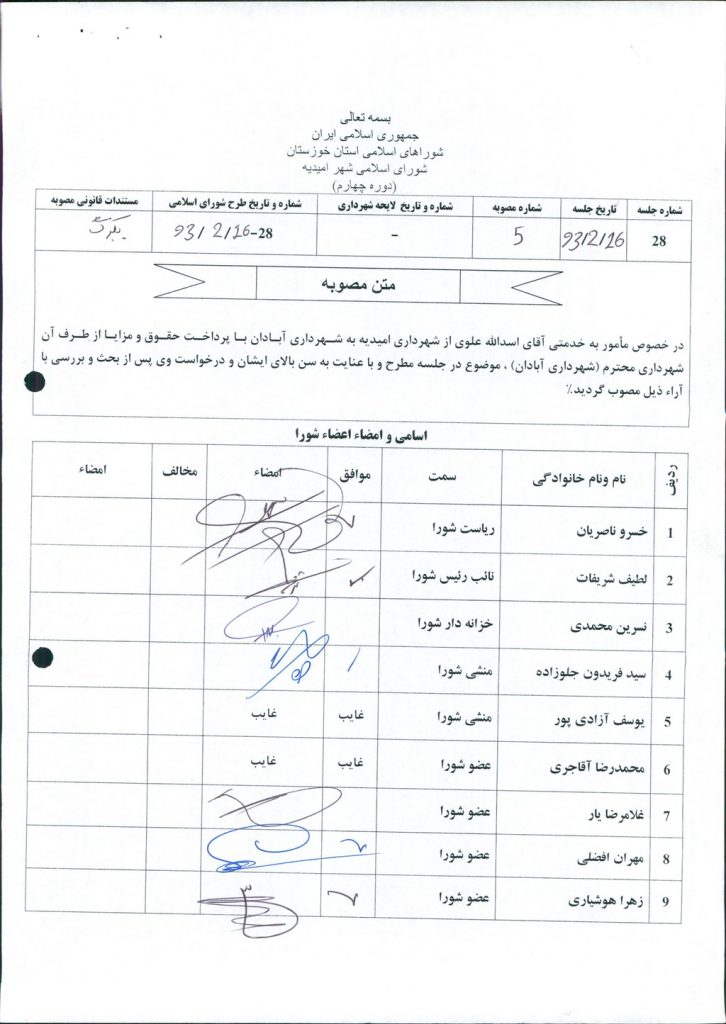 بسمه تعالی
جمهوری اسلامی ایران
شوراهای اسلامی استان خوزستان
شورای اسلامی شهر امیدیه
(دوره چهارم)
شماره جلسه تاریخ جلسه شماره مصوبه شماره و تاریخ لایحه شهرداری شماره و تاریخ طرح شورای اسلامی مستندات قانونی مصوبه
28 93/2/16 5 - 28-93/2/16
متن مصوبه
در خصوص مأمور به خدمتی آقای اسدالله علوی از شهرداری امیدیه به شهرداری آبادان با پرداخت حقوق و مزایا از طرف آن
شهرداری محترم (شهرداری آبادان) ، موضوع در جلسه مطرح و با عنایت به سن بالای ایشان و درخواست وی پس از بحث و بررسی با
آراء ذیل مصوب گردید.٪
اسامی و امضاء اعضاء شورا
ردیف نام ونام خانوادگی سمت موافق امضاء مخالف امضاء
1 خسرو ناصریان ریاست شورا
2 لطیف شریفات نائب رئیس شورا
3 نسرین محمدی خزانه دار شورا
4 سید فریدون جلوزاده منشی شورا
5 یوسف آزادی پور منشی شورا غایب غایب
6 محمدرضا آقاجری عضو شورا غایب غایب
7 غلامرضا یار عضو شورا
8 مهران افضلی عضو شورا
9 زهرا هوشیاری عضو شورا